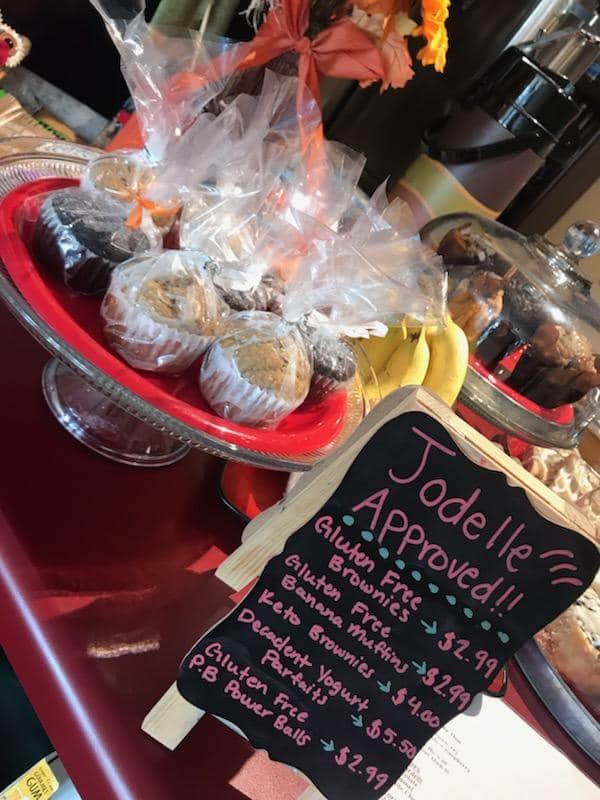 Jodelle
APPROVED!!
Gluten Free
Brownies → $2.99
Gluten Free
Banana Muffins → $2.99
Keto Brownies → $4.00
Decadent Yogurt
Parfaits → $5.50
Gluten Free
P.B Power Balls → $2.99
GUM